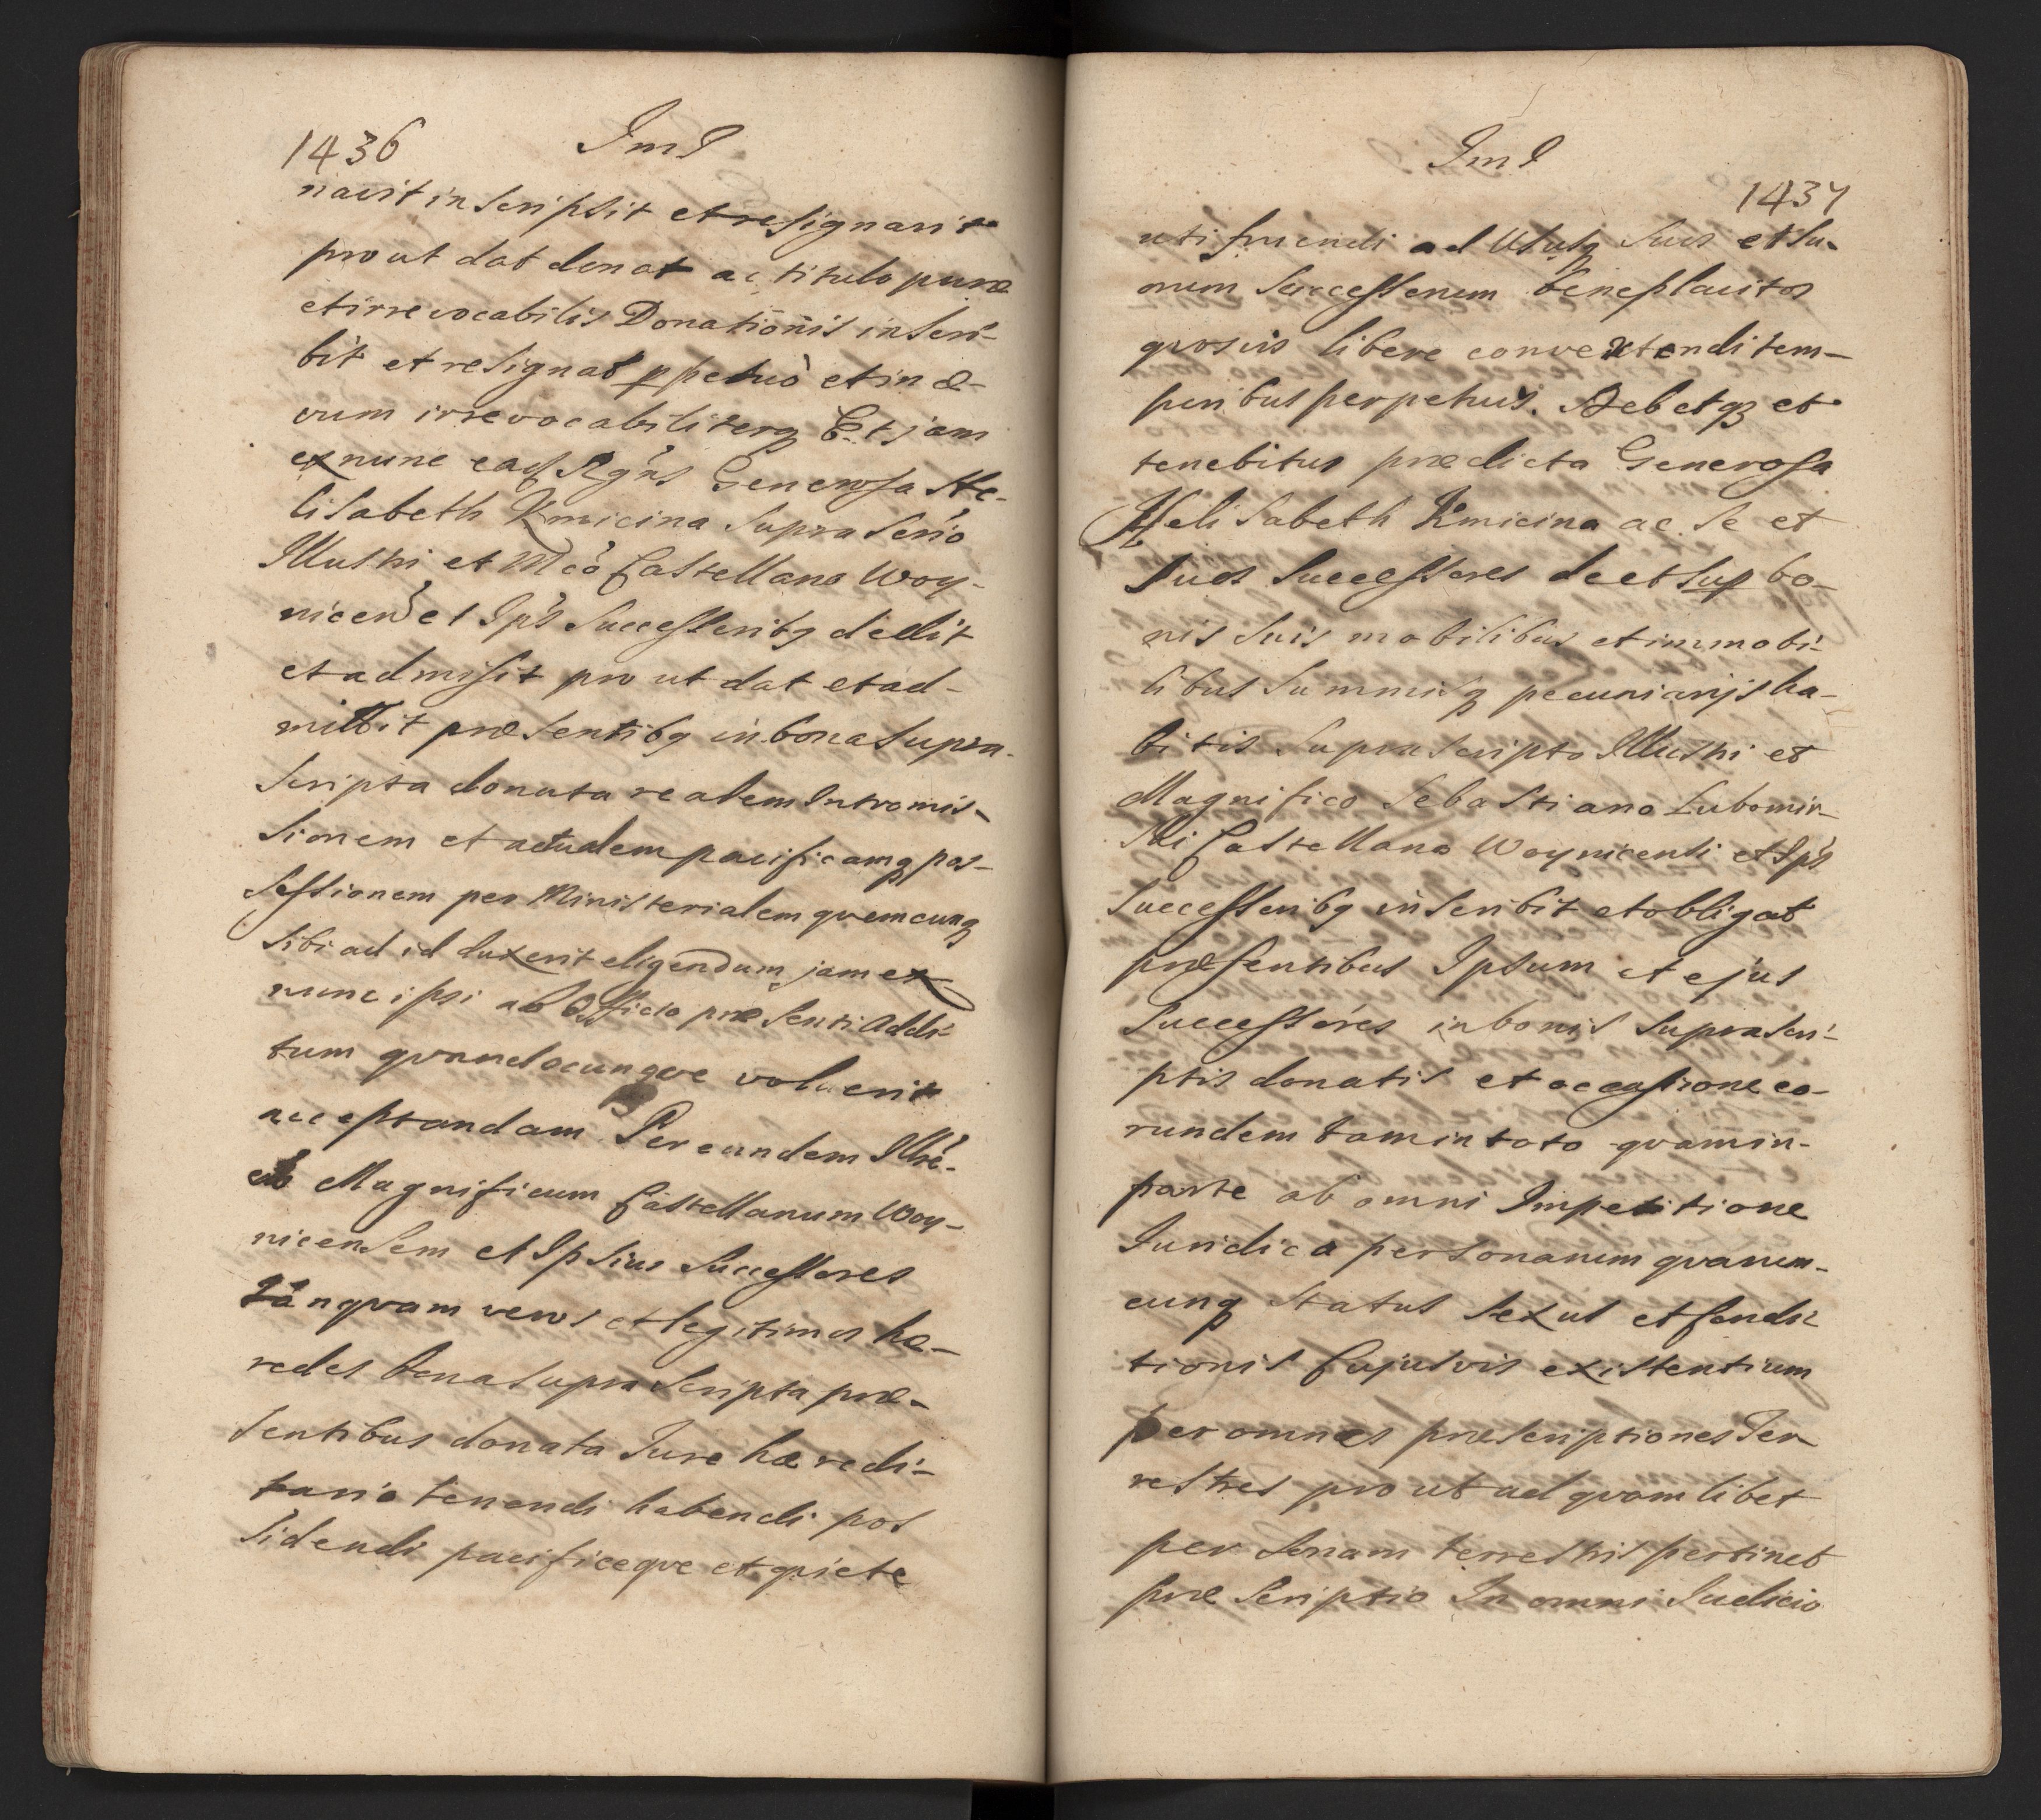 1436 ImI
navit inscripsit et resignavit
prout dat donat ac titulo puræ
et irrevocabilis Donationis inscri-
bit et resignat ppetuò et in æ-
vum irrevocabiliterq Et jam
ex nunc ead Rgńs Generosa He-
lisabeth Kmicina suprascrio
Illustri et Mcó Castellano Woy-
nicen et Ips Successoribq dedit
et admisit pro ut dat et ad-
mittit præsentibq in bona supra-
scripta donata realem Intromis-
sionem et actualem pacificamq pos-
sessionem per Ministerialem quemcunq
sibi ad id duxerit eligendum jam ex
nunc ipsi ab Officio præsenti Addi-
tum quandocunque voluerit
acceptandam Per eundem Illre-
et Magnificum Castellanum Woy-
nicensem et Ipsius Successores
tanquam veros et legitimos hæ-
redes bona suprascripta præ-
sentibus donata Jure hæredi-
tario tenendi habendi pos
sidendi pacificeque et quiete
ImI
1437
utifruendi ad Ususq suos et su-
orum Successorum beneplacitos
quosvis libere convertendi tem-
poribus perpetuis. Debetq et
tenebitur prædicta Generosa
Helisabeth Kmicina ac se et
suos Successores de et sup bo-
nis suis mobilibus et immobi-
libus summisq pecuniarijs ha-
bitis suprascripto Illustri et
Magnifico Sebastiano Lubomir-
ski Castellano Woynicensi et Ips
Successoribq inscribit et obligat
præsentibus Ipsum et ejus
Successores in bonis suprascri-
ptis donatis et occasione eo-
rundem tam in toto quam in-
parte ab omni Impetitione
Juridica personarum quarum-
cunq status sexus et Condi
tionis Cujusvis existentium
per omnes præscriptiones Ter-
restres pro ut ad quamlibet
per sonam terrestris pertinet
præscriptio In omni Judicio